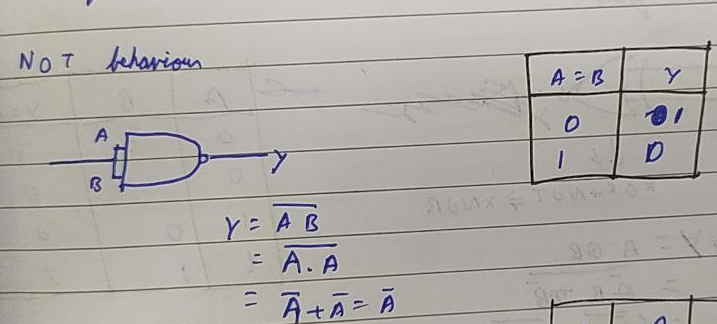 NOT behaviour
A = B Y
0 1
1 0
A
B
Y
Y = \overline{A B}
= \overline{A . A}
= \overline{A} + \overline{A} = \overline{A}